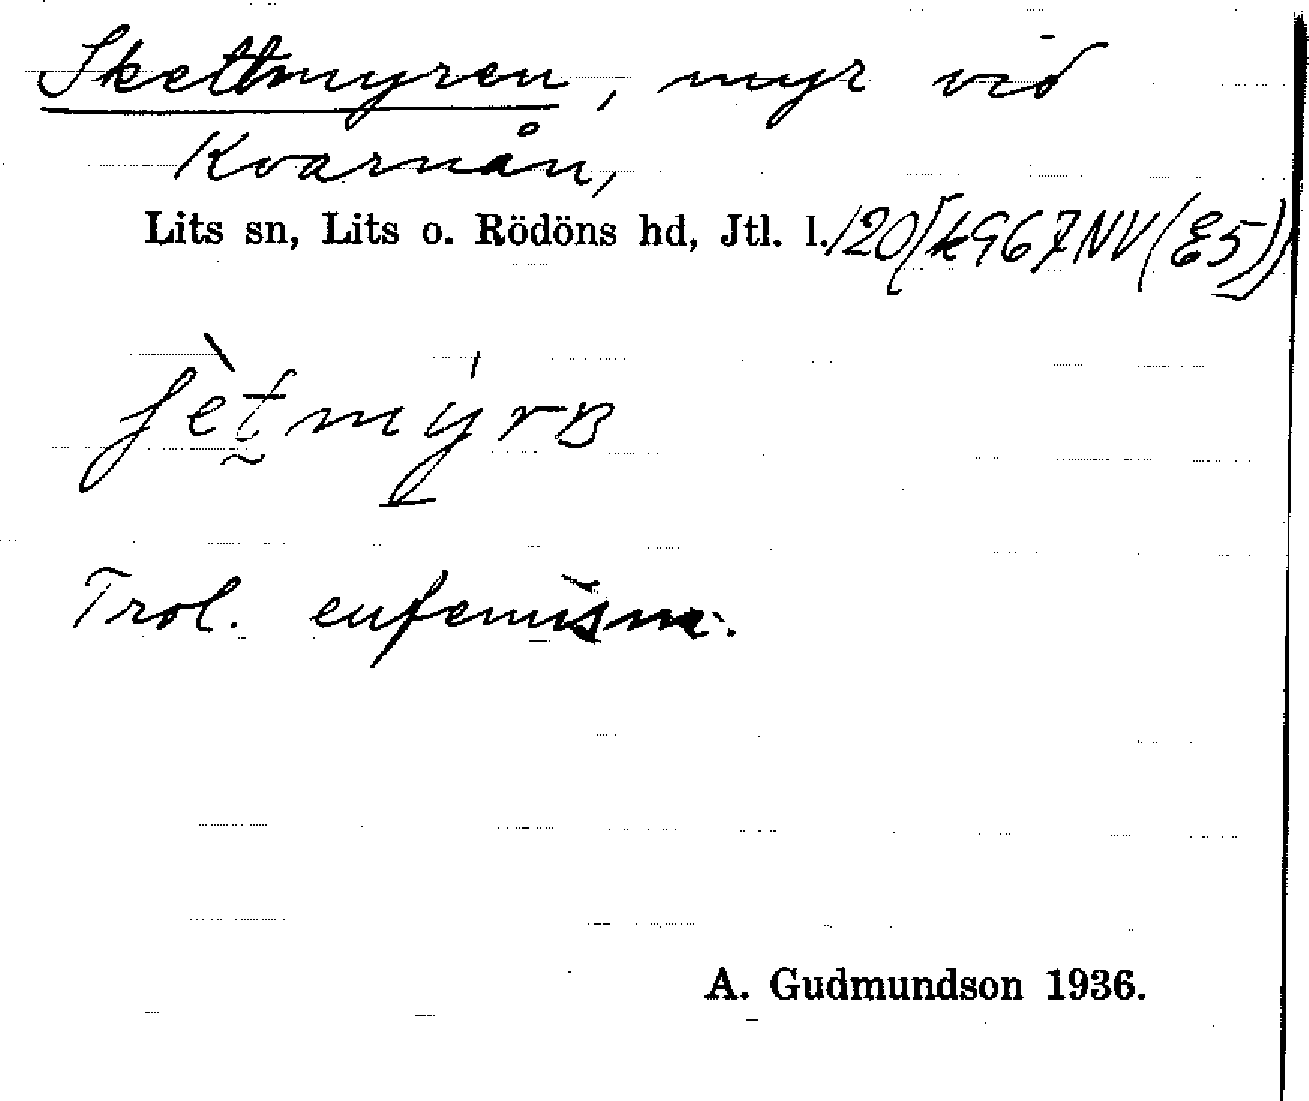 Skettmyren, myr vid
Kvarnån,
Lits sn, Lits o. Rödöns hd, Jtl. l. 120 [k967NV(E5)]
ʃètmýrɐ
Trol. eufemism.
A. Gudmundson 1936.